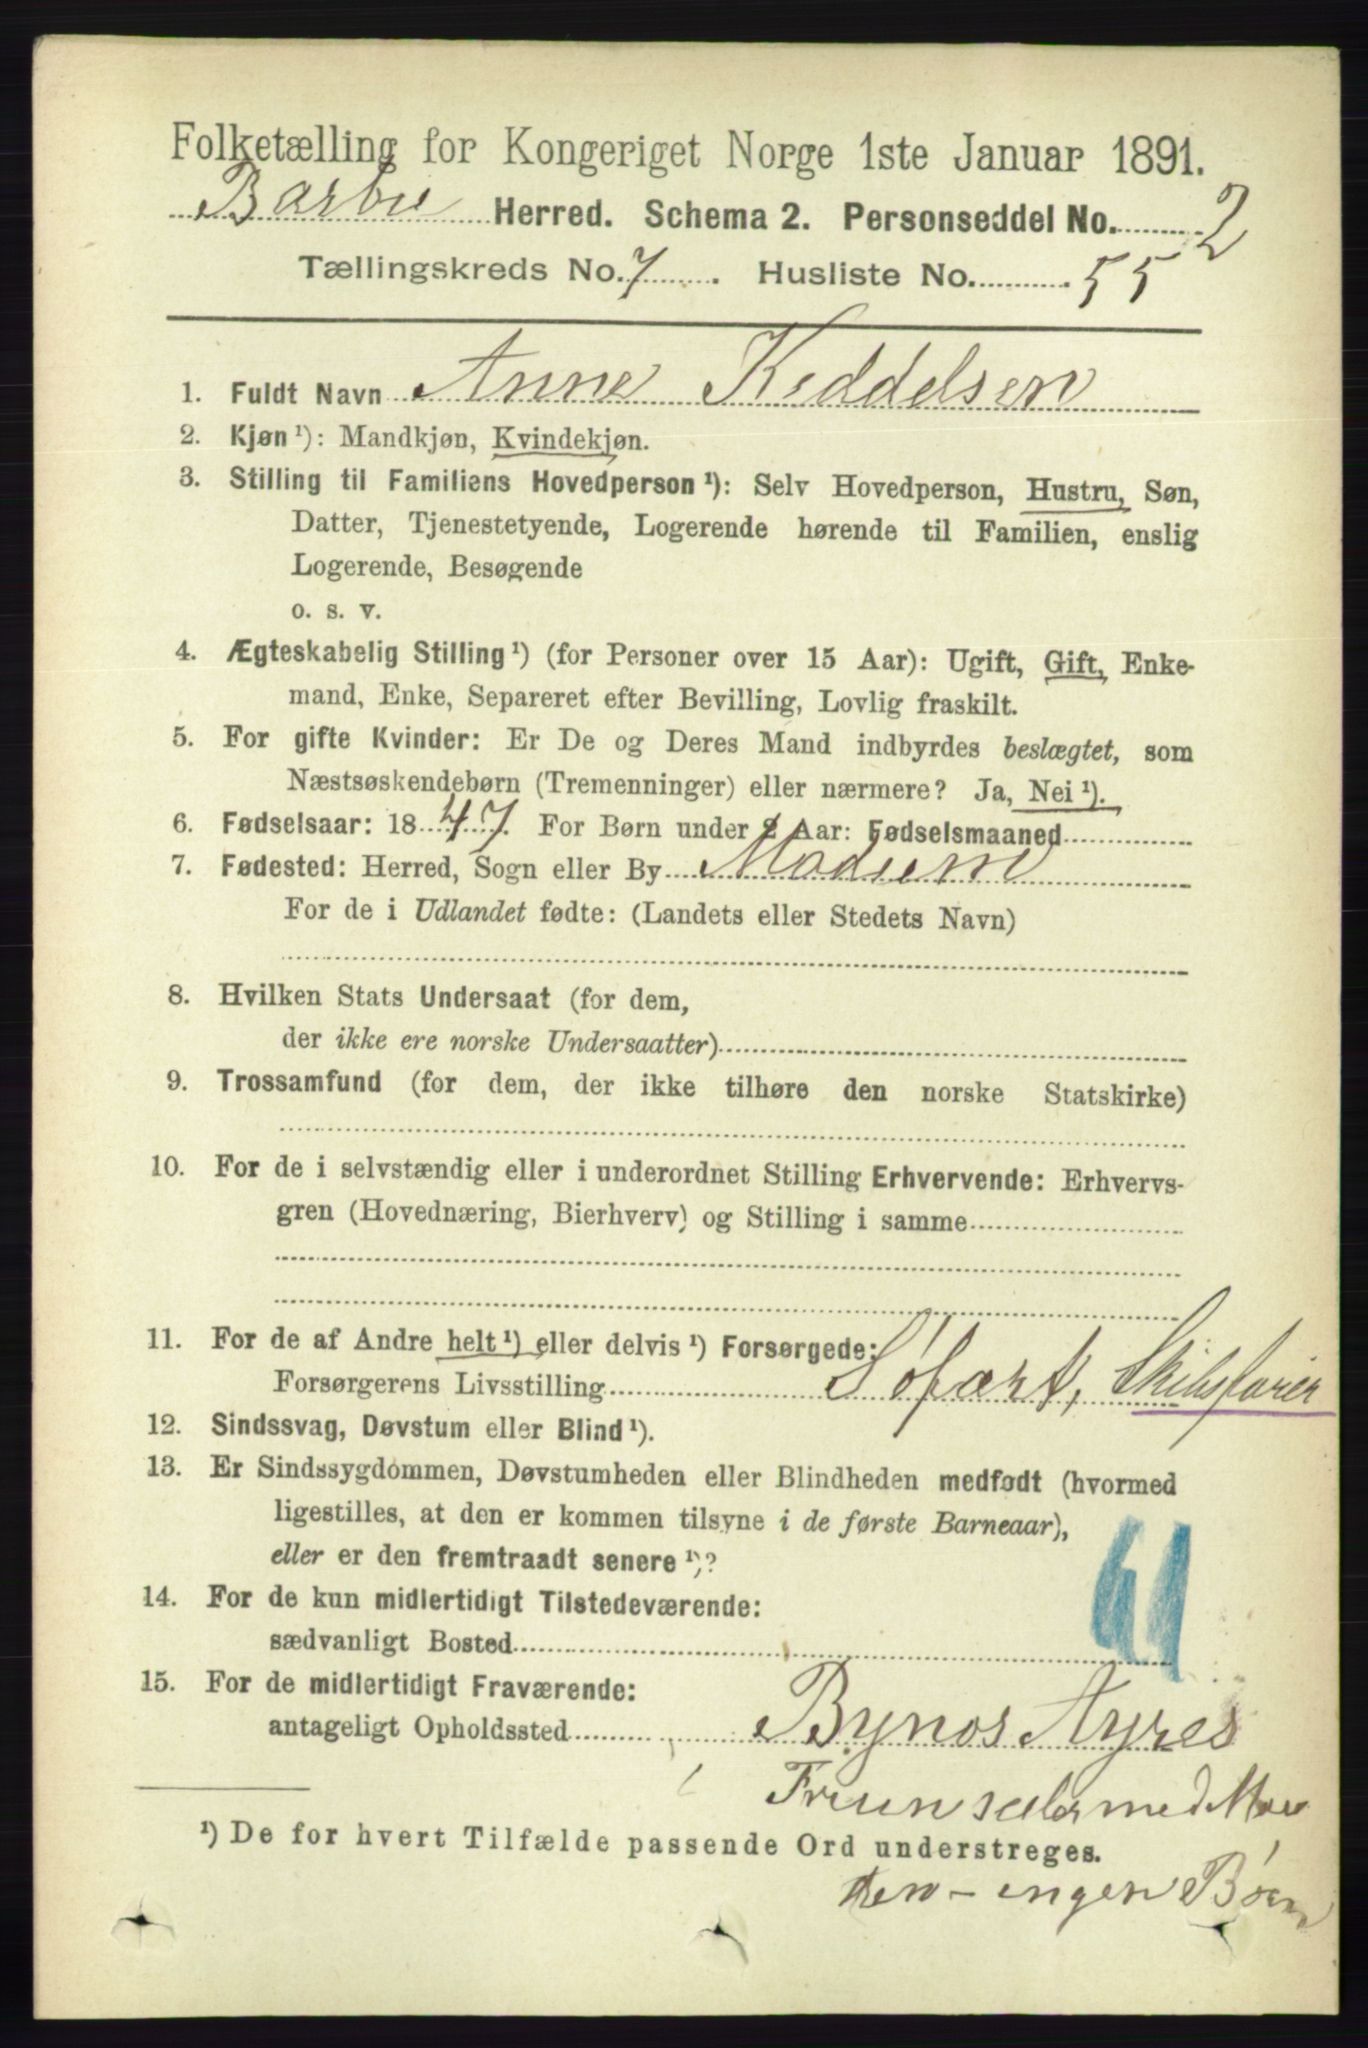 Folketælling for Kongeriget Norge 1ste Januar 1891.
Barbu Herred. Schema 2. Personseddel No. 2
Tællingskreds No. 7. Husliste No. 55
1. Fuldt Navn Anne Keddelsen
2. Kjøn ¹): Mandkjøn, Kvindekjøn.
3. Stilling til Familiens Hovedperson ¹): Selv Hovedperson, Hustru, Søn,
Datter, Tjenestetyende, Logerende hørende til Familien, enslig
Logerende, Besøgende
o. s. v.
4. Ægteskabelig Stilling ¹) (for Personer over 15 Aar): Ugift, Gift, Enke-
mand, Enke, Separeret efter Bevilling, Lovlig fraskilt.
5. For gifte Kvinder: Er De og Deres Mand indbyrdes beslægtet, som
Næstsøskendebørn (Tremenninger) eller nærmere? Ja, Nei ¹).
6. Fødselsaar: 1847. For Børn under 2 Aar: Fødselsmaaned
7. Fødested: Herred, Sogn eller By
For de i Udlandet fødte: (Landets eller Stedets Navn)
8. Hvilken Stats Undersaat (for dem,
der ikke ere norske Undersaatter)
9. Trossamfund (for dem, der ikke tilhøre den norske Statskirke)
10. For de i selvstændig eller i underordnet Stilling Erhvervende: Erhvervs-
gren (Hovednæring, Bierhverv) og Stilling i samme
11. For de af Andre helt ¹) eller delvis ¹) Forsørgede:
Forsørgerens Livsstilling Søfart, Skibsfører
12. Sindssvag, Døvstum eller Blind ¹).
13. Er Sindssygdommen, Døvstumheden eller Blindheden medfødt (hvormed
ligestilles, at den er kommen tilsyne i de første Barneaar),
eller er den fremtraadt senere ¹)?
14. For de kun midlertidigt Tilstedeværende:
sædvanligt Bosted
15. For de midlertidigt Fraværende:
antageligt Opholdssted Bynos Ayres
med
¹) De for hvert Tilfælde passende Ord understreges.
ingen Børn